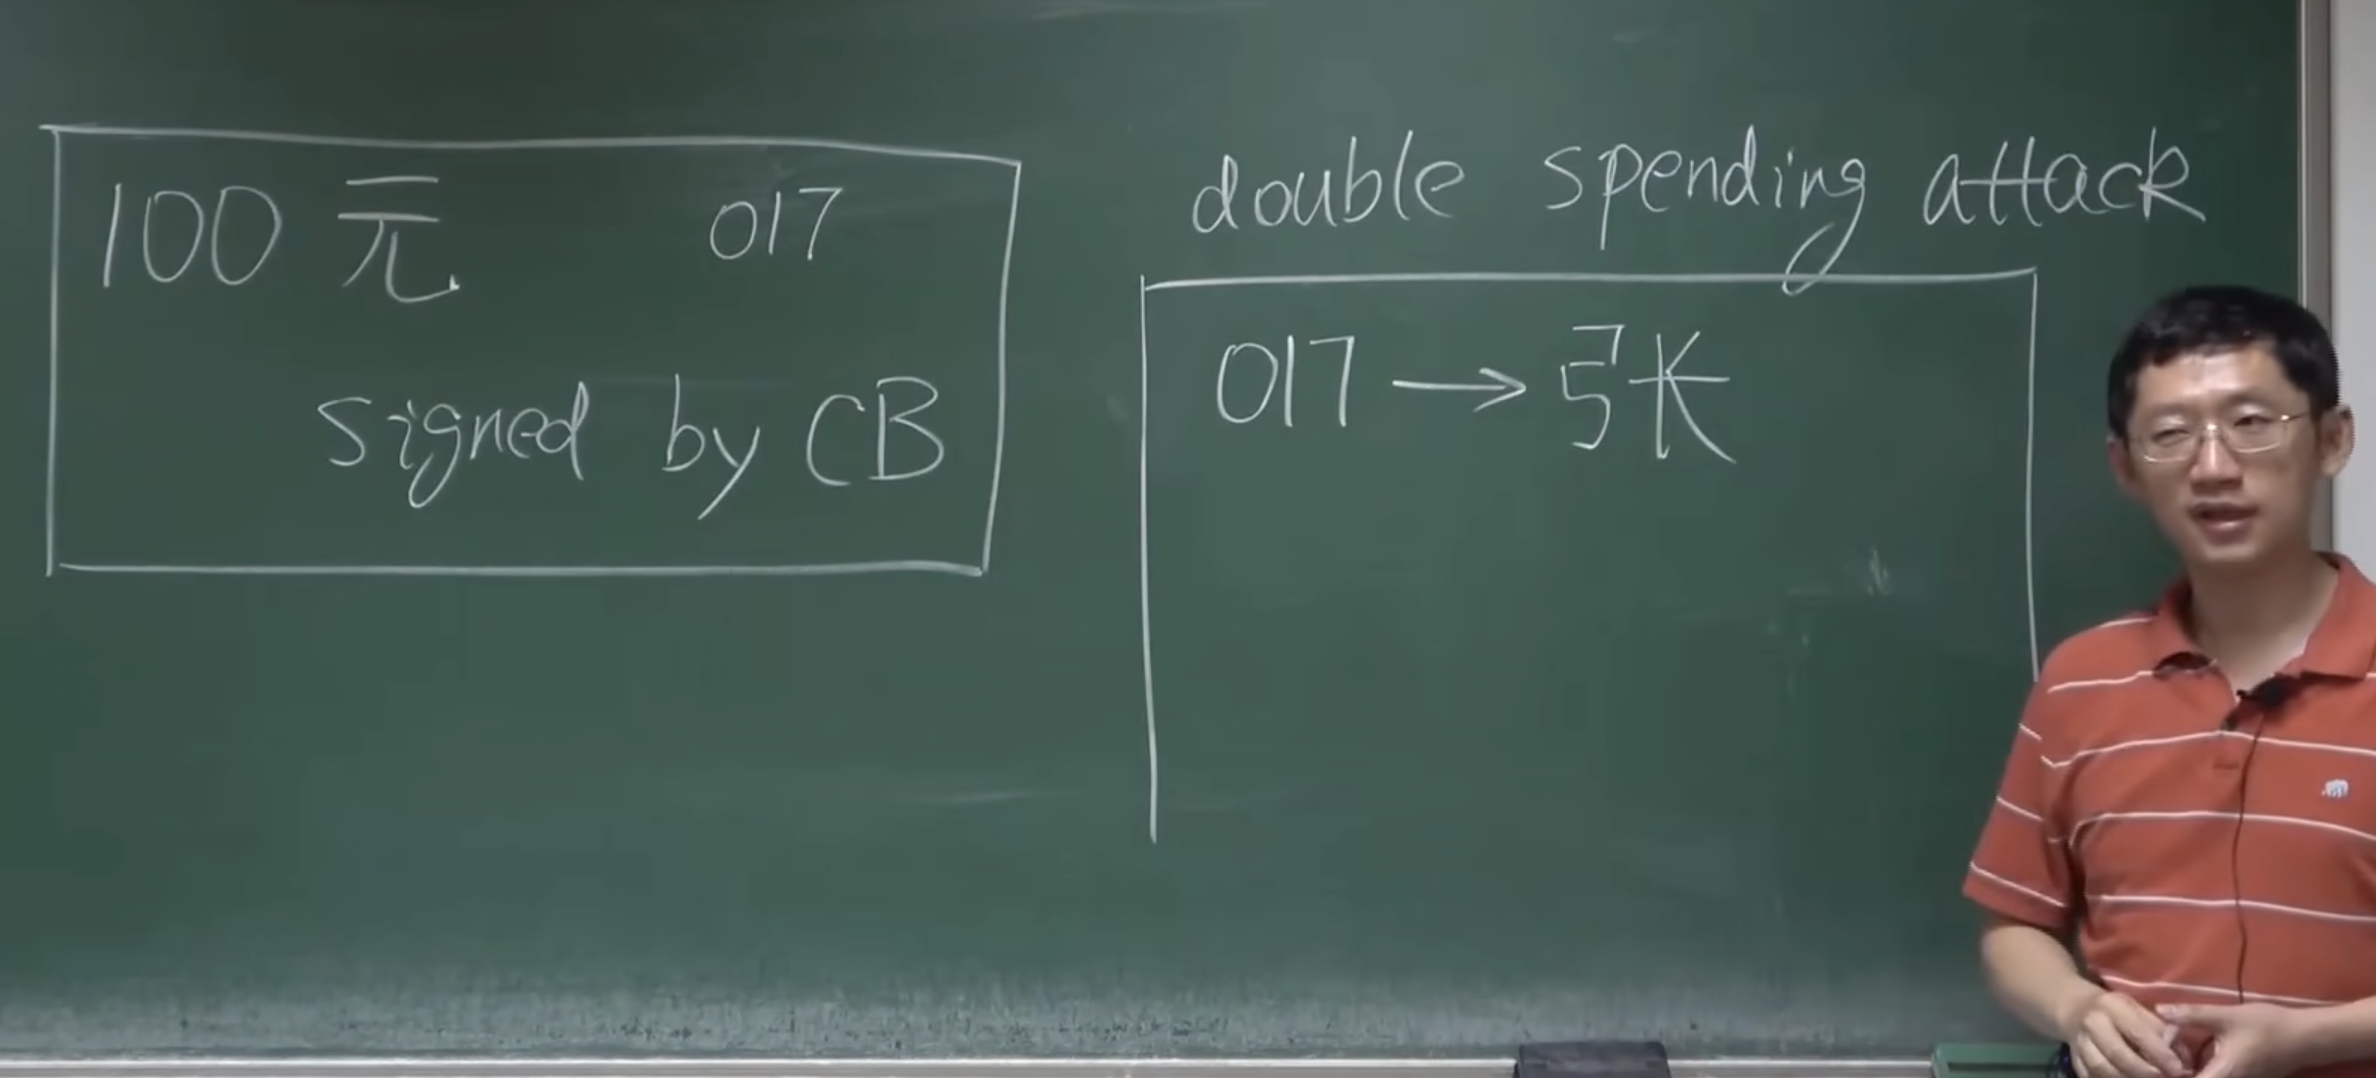 100元 017
signed by CB
double spending attack
017→张